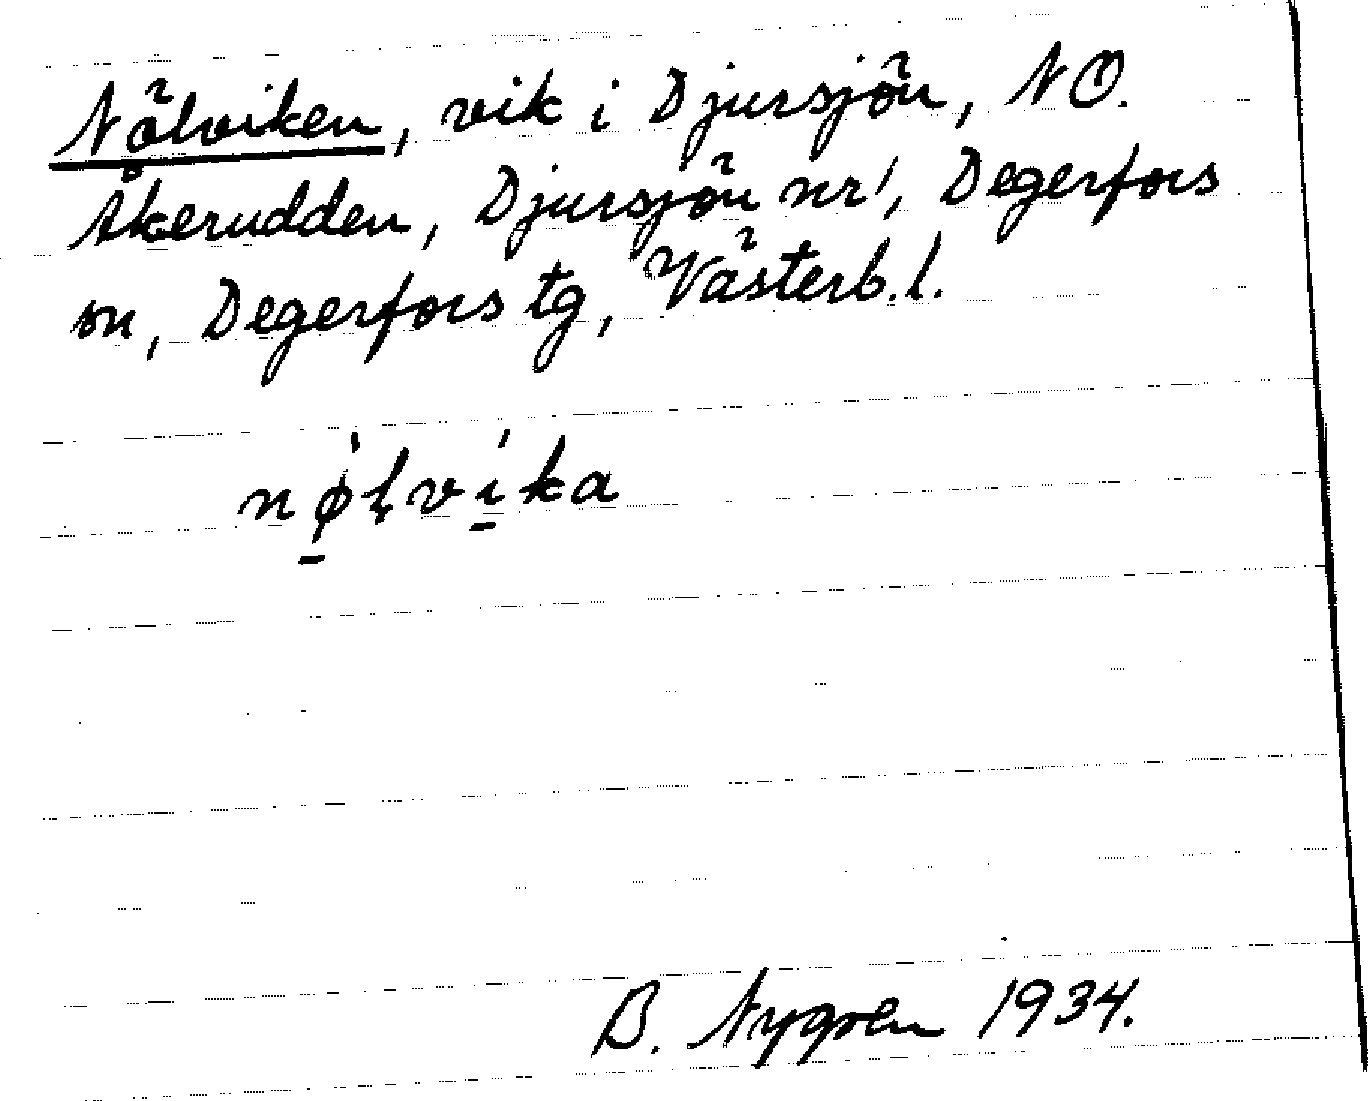 Nölviken, vik i Djursjön, NO.
Åkerudden, Djursjön nr 1, Degerfors
sn, Degerfors tg, Västerb.l.
nø̱̀ļvḭ́ka
B. Nygren 1934.